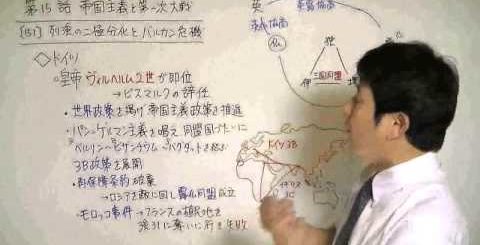 第15話 帝国主義と第一次大戦
[151] 列強の二極分化とバルカン危機
◇ドイツ
◦皇帝 ヴィルヘルム2世が即位
→ビスマルクの辞任
・世界政策を掲げ 帝国主義政策を推進
・パン=ゲルマン主義を唱え 同盟国づたいに
ベルリン〜ビザンティウム〜バグダッドを結ぶ
3B政策を展開
・再保障条約破棄
→ロシアを敵に回し 露仏同盟成立
・モロッコ事件→フランスの植民地を
強引に奪いに行き 失敗
英
英露協商
英仏協商
仏
独
三国同盟
伊
墺
ドイツ3B